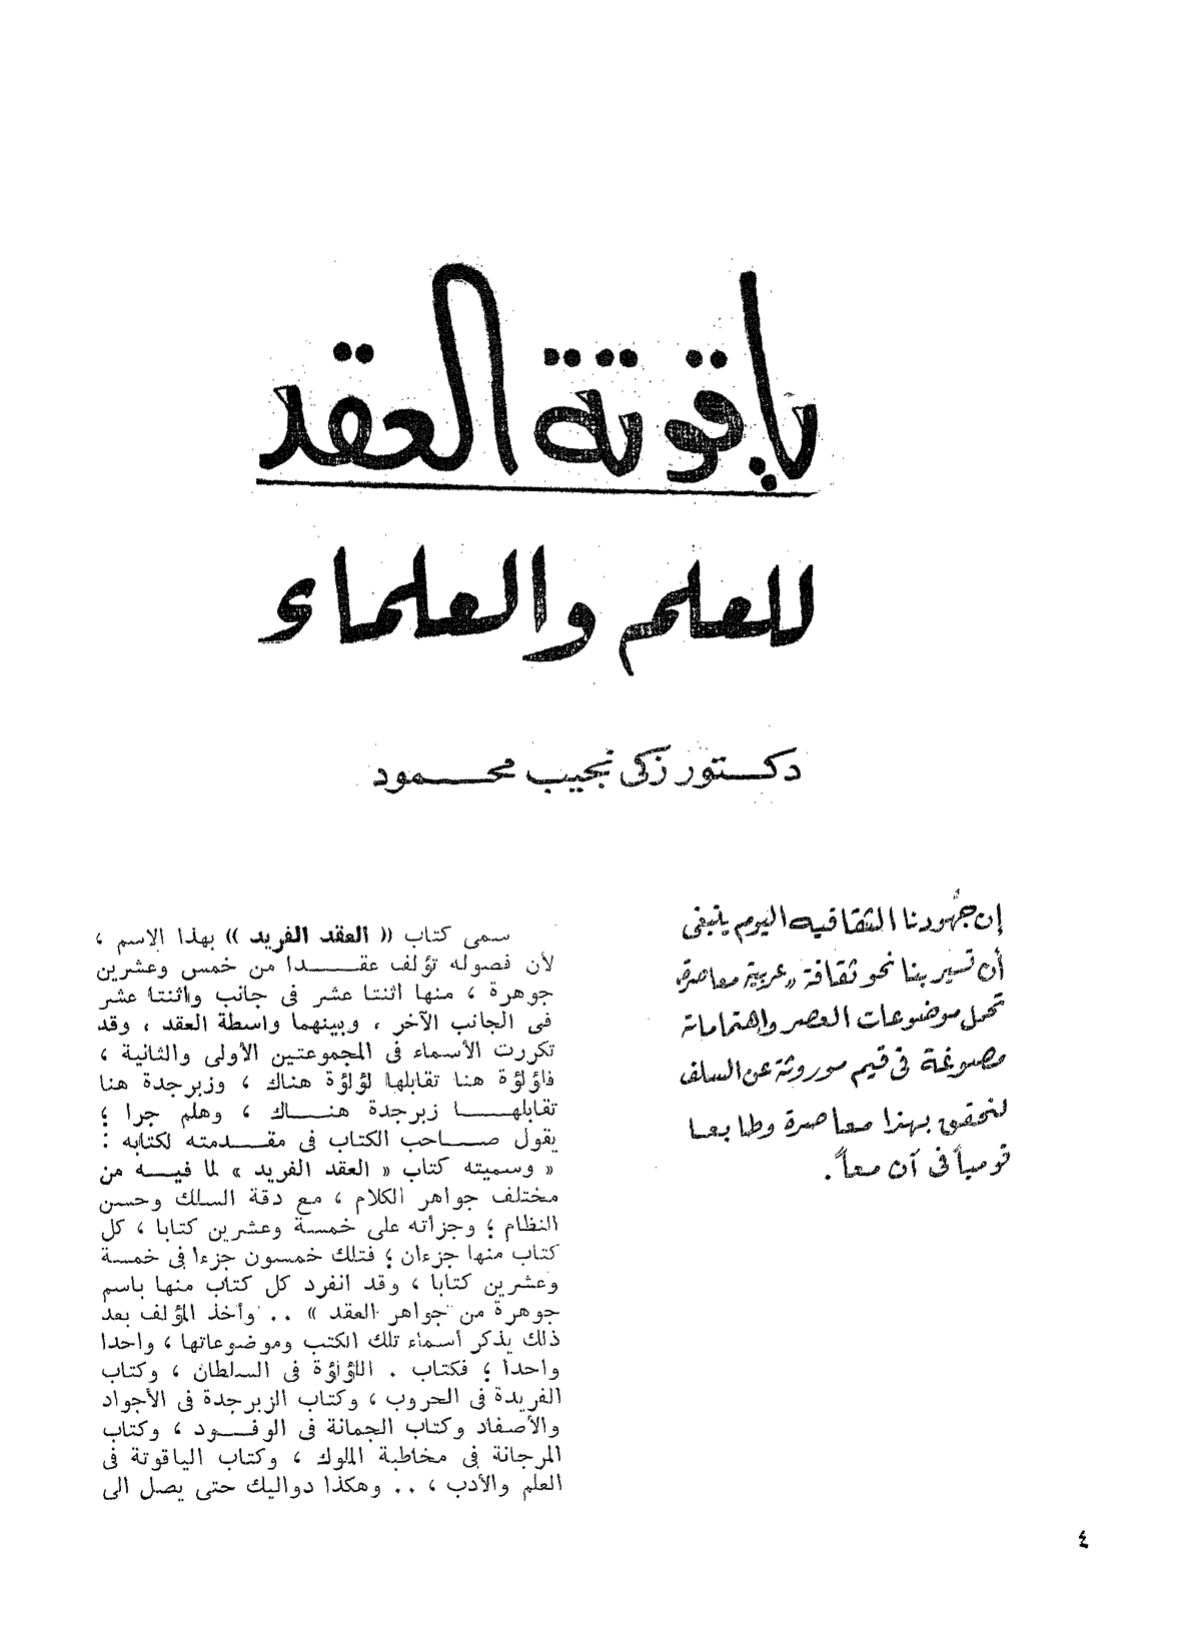 ياقوتة العقد
للعلم والعلماء
دكتور زكى نجيب محمود
إن جهودنا الثقافيه اليوم ينبغى
أن تسير بنا نحو ثقافة «عربية معاصرة»
تحمل موضوعات العصر واهتماماته
مصبوغة فى قيم موروثة عن السلف
لنحقق بهذا معاصرة وطابعا
قومياً فى آن معاً .
سمى كتاب (( العقد الفريد )) بهذا الاسم ،
لأن فصوله تؤلف عقدا من خمس وعشرين
جوهرة ، منها اثنتا عشر فى جانب واثنتا عشر
فى الجانب الآخر ، وبينهما واسطة العقد ، وقد
تكررت الأسماء فى المجموعتين الأولى والثانية ،
فلؤلؤة هنا تقابلها لؤلؤة هناك ، وزبرجدة هنا
تقابلها زبرجدة هناك ، وهلم جرا ؛
يقول صاحب الكتاب فى مقدمته لكتابه :
« وسميته كتاب « العقد الفريد » لما فيه من
مختلف جواهر الكلام ، مع دقة السلك وحسن
النظام ؛ وجزأته على خمسة وعشرين كتابا ، كل
كتاب منها جزءان ؛ فتلك خمسون جزءا فى خمسة
وعشرين كتابا ، وقد انفرد كل كتاب منها باسم
جوهرة من جواهر العقد » .. وأخذ المؤلف بعد
ذلك يذكر أسماء تلك الكتب وموضوعاتها ، واحدا
واحدا ؛ فكتاب . اللؤلؤة فى السلطان ، وكتاب
الفريدة فى الحروب ، وكتاب الزبرجدة فى الأجواد
والأصفاد وكتاب الجمانة فى الوفود ، وكتاب
المرجانة فى مخاطبة الملوك ، وكتاب الياقوتة فى
العلم والأدب ، .. وهكذا دواليك حتى يصل الى
٤